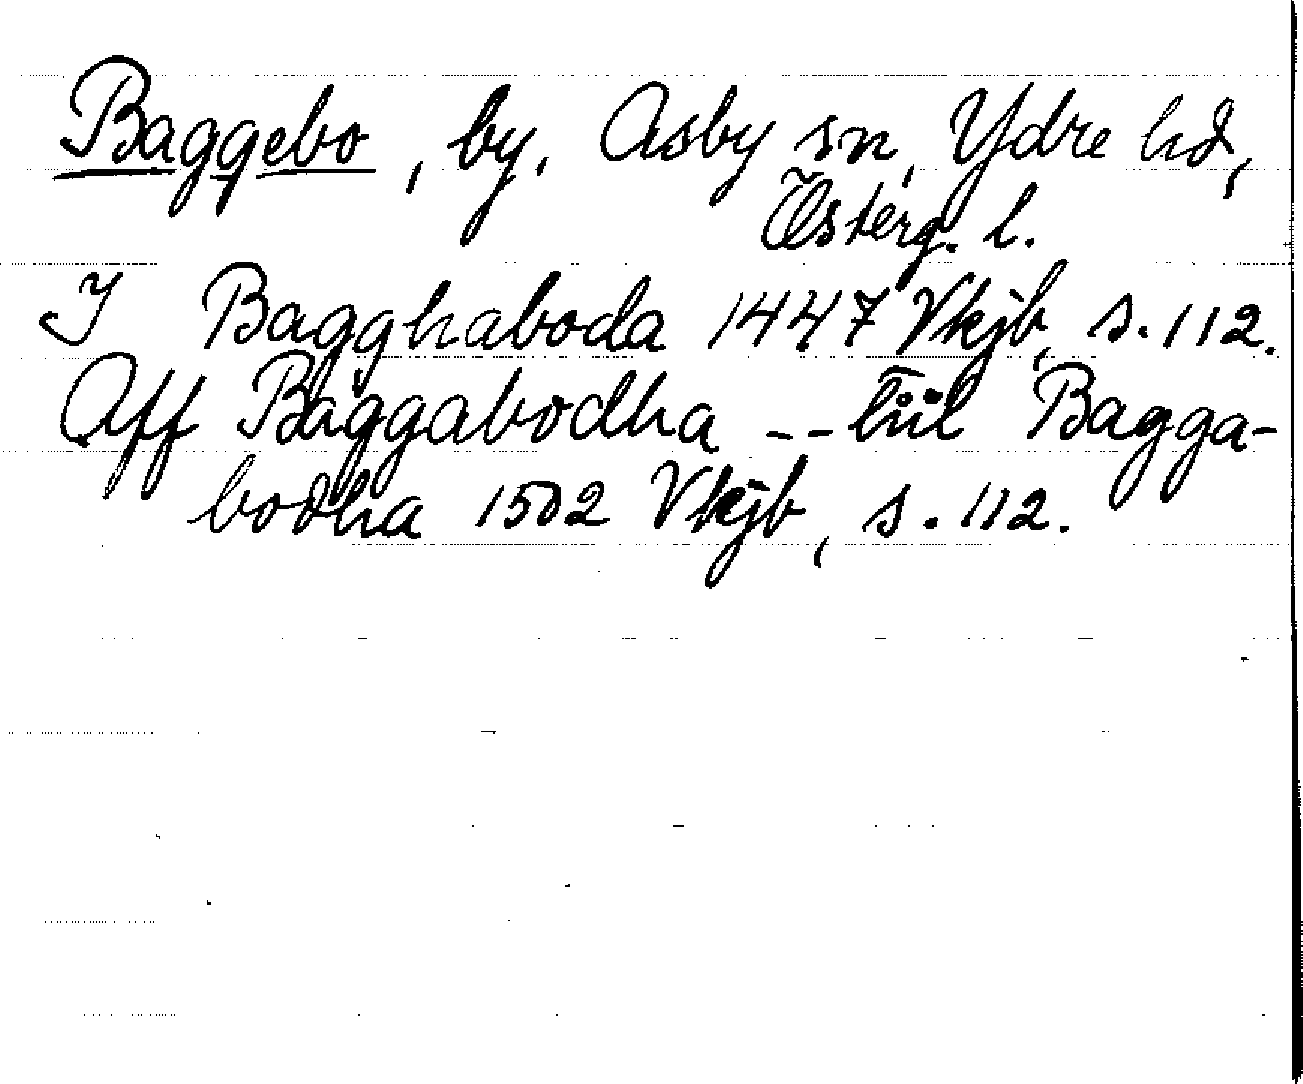 Baggebo, by, Asby sn, Ydre hd,
Österg. l.
I Bagghaboda 1447 Vkjb, s. 112.
Aff Baggabodha -- tiil Bagga-
bodha 1502 Vkjb, s. 112.